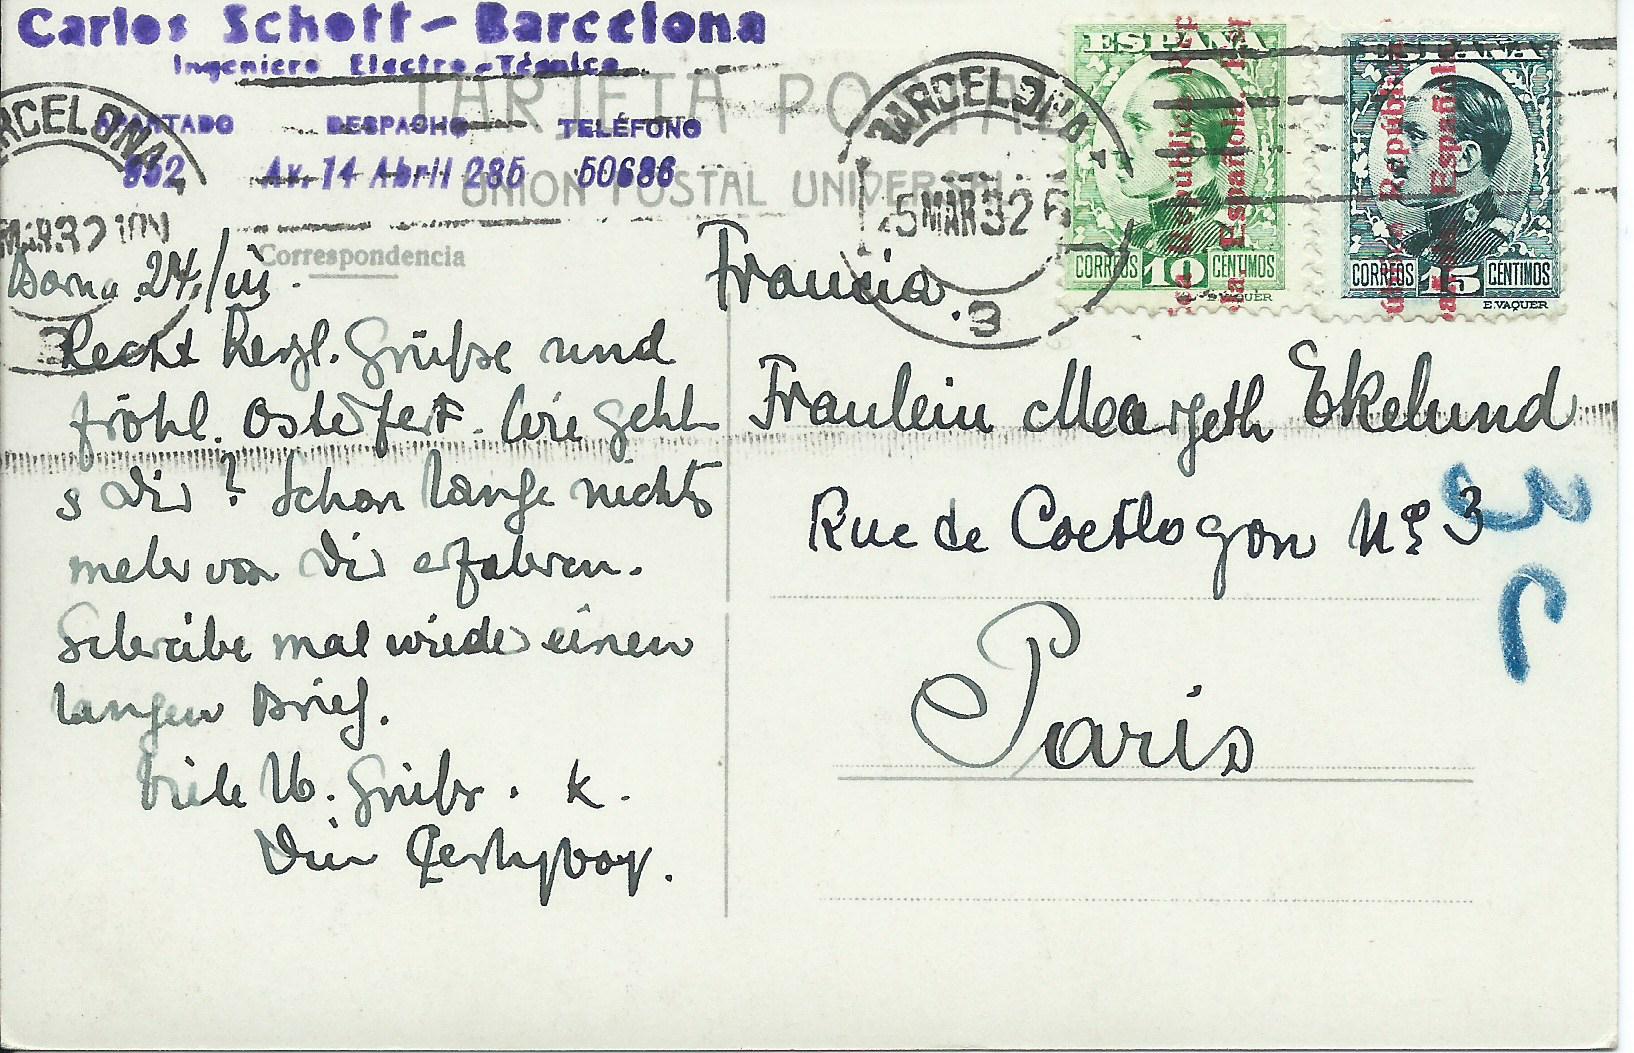 Carlos Schott - Barcelona
Ingeniero Electro-Técnico
APARTADO DESPACHO TELÉFONO
952 Av. 14 Abril 285 50686
TARJETA POSTAL
UNION POSTAL UNIVERSAL
Correspondencia
BARCELONA
MAR 32
BARCELONA
25 MAR 32
3
ESPAÑA
República Española.
CORREOS 10 CENTIMOS
E. VAQUER
ESPAÑA
República Española.
CORREOS 15 CÉNTIMOS
E. VAQUER
Barna 24/III.
Recht herzl. Grüße und
fröhl. Osterfest. Wie geht
s Dir? Schon lange nichts
mehr von Dir erfahren.
Schreibe mal wieder einen
langen Brief.
Viele
Dein
Francia.
Fraulein Margeth Ekelund
Rue de Coetlogon Nº 3
Paris